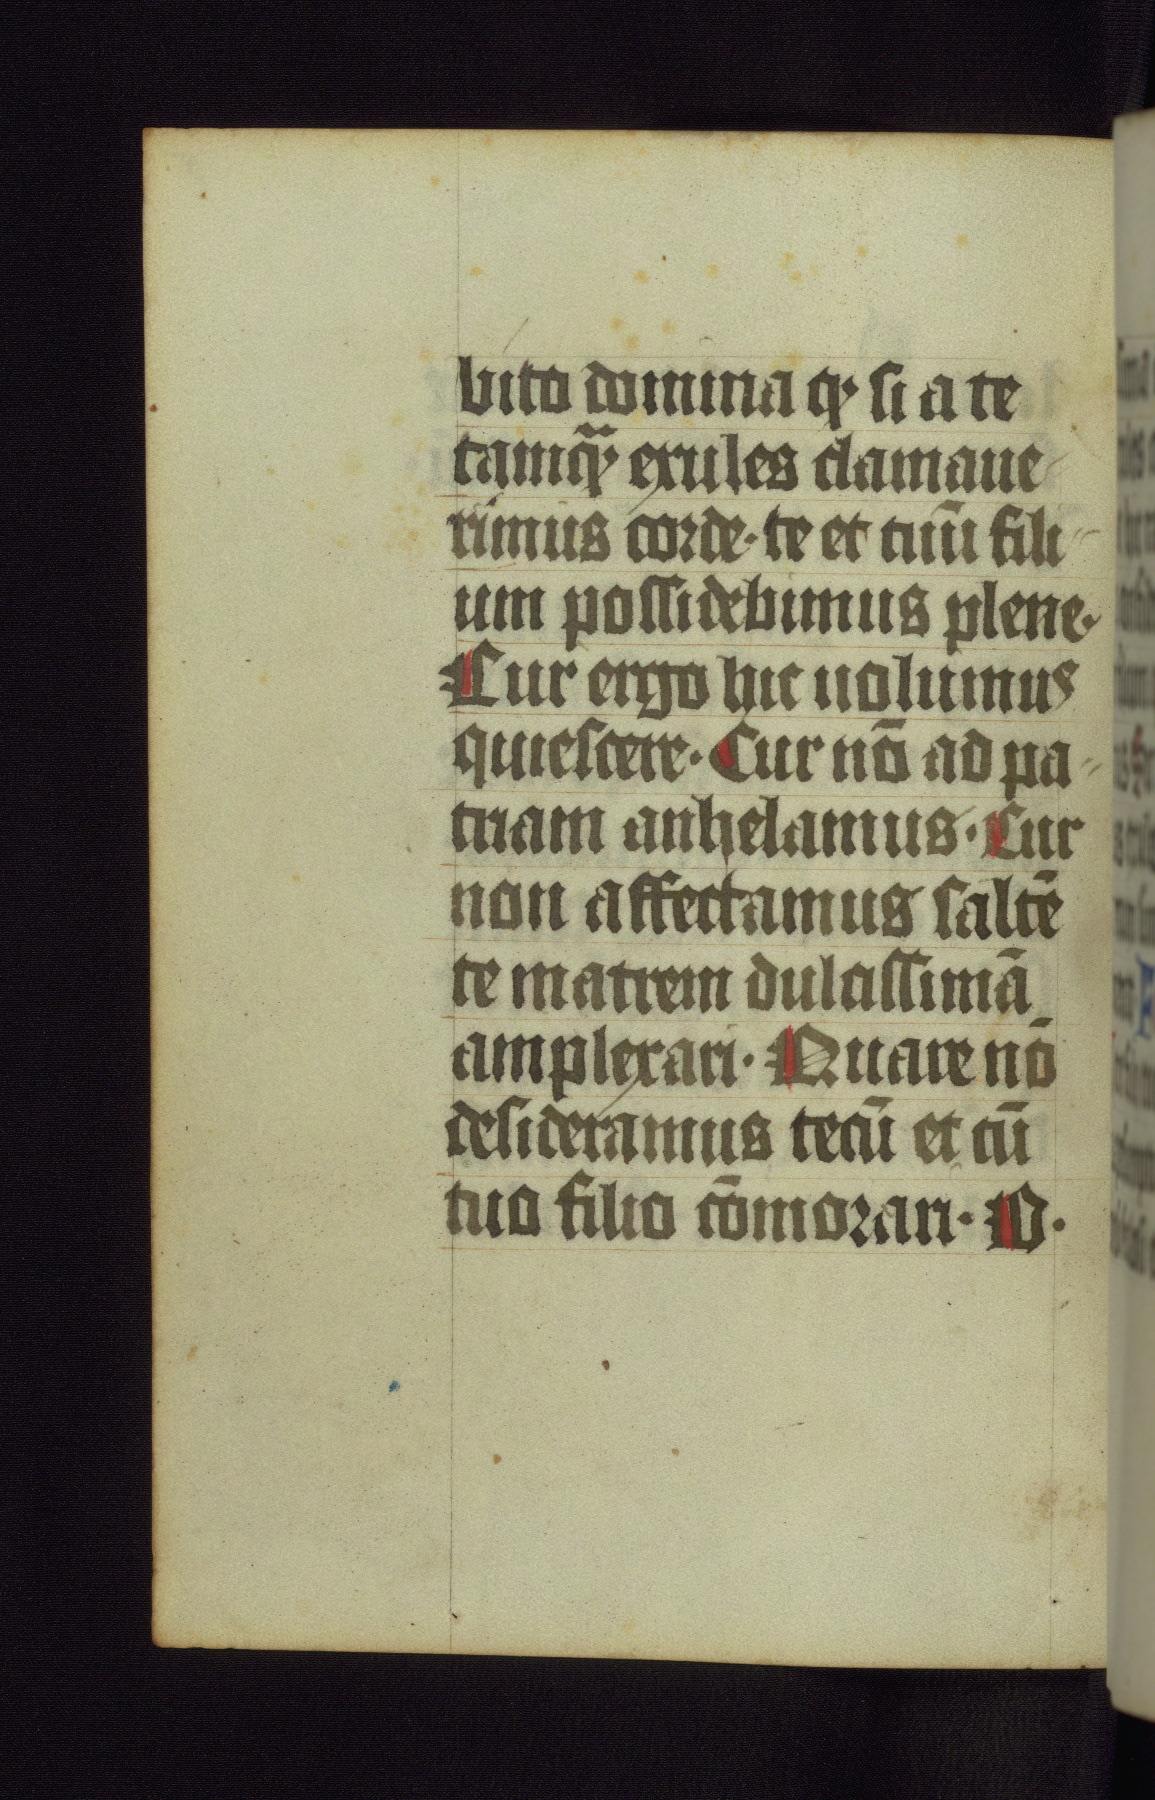 bito domina qꝫ si a te
tamqꝫ̃ exules clamaue-
rimus corde· te et tuū fili-
um possidebimus plene·
Cur ergo hic uolumus
quiescere· Cur nō ad pa-
triam anhelamus· Cur
non affectamus saltē
te matrem dulcissimā
amplexari· Quare nō
desideramus tecū et cū
tuo filio cōmorari· O·